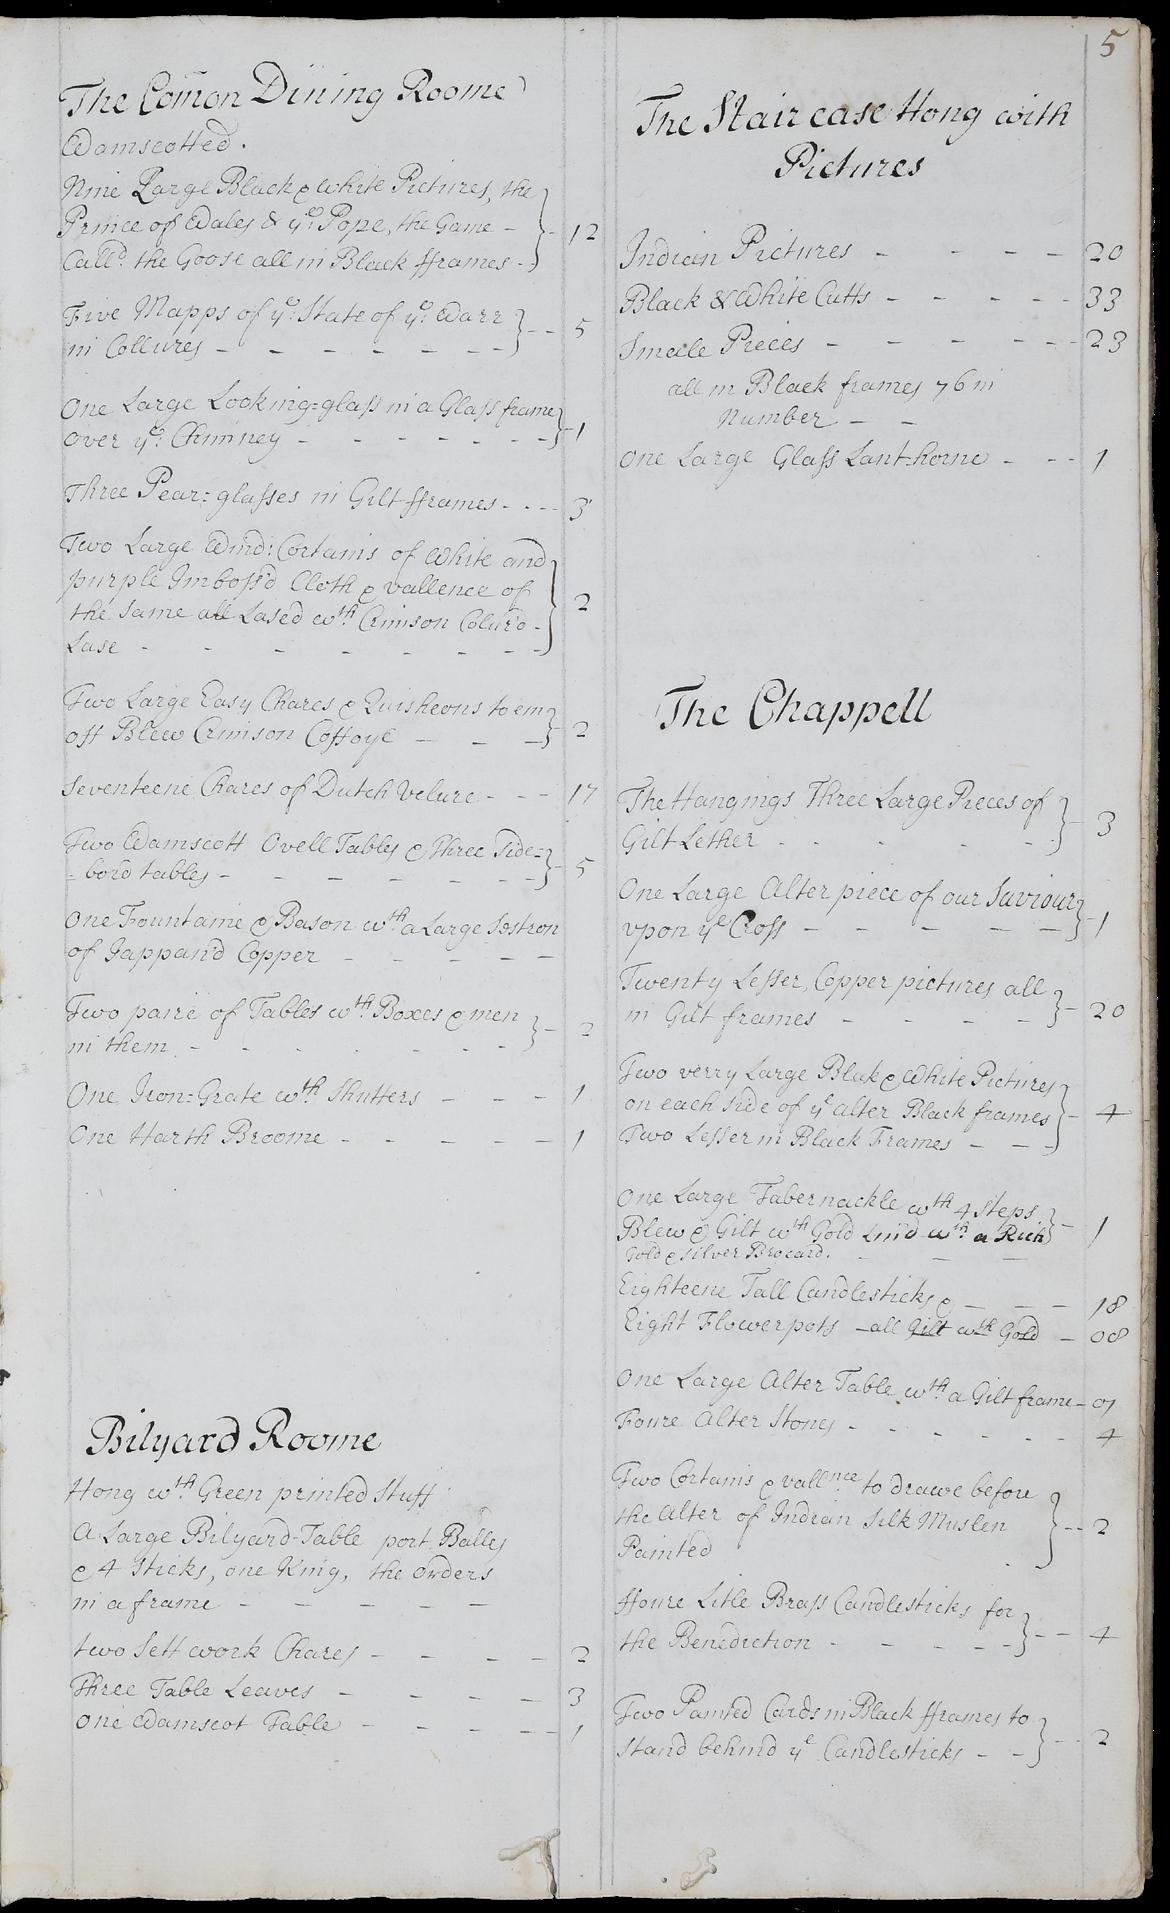 5
The Com̄on Dining Roome
Wamscotted.
Nine Large Black & white Pictures, the
Prince of Wales & yͤ: Pope, the Game -
Callᵈ: the Goose all in Black fframes - } - 12
Five Mapps of yͤ: State of yͤ: Warr
in Collures - - - - - - - } - - 5
One Large Looking=glass in a Glass frame
over yͤ: Chimney - - - - - - - } 1
Three Pear=glasses in Gilt fframes - - - - 3
Two Large Wind: Cortains of white and
purple Imboss'd Cloth & vallence of
the Same all Lased wᵗʰ: Crimson Colur'd -
Lase - - - - - - - - } 2
Two Large Easy Chares & Quisheons to em
off Blew Crimson Coffoye - - - } 2
Seventeene Chares of Dutch Velure - - - 17
Two Wamscott Ovell Tables & Three Side=
=bord tables - - - - - - - } 5
One Fountaine & Bason wᵗʰ a Large Sestron
of Jappan'd Copper - - - - -
Two paire of Tables wᵗʰ: Boxes & men
in them - - - - - - - } - 2
One Iron=Grate wᵗʰ Shutters - - - - 1
One Harth Broome - - - - - 1
Bilyard Roome
Hong wᵗʰ: Green printed Stuff
A Large Bilyard-Table port, Balles
& 4 Sticks, one King, the Orders
in a frame - - - - -
two Sett work Chares - - - - - 2
Three Table Leaves - - - - 3
One Wamscot Table - - - - - 1
The Staircase Hong with
Pictures
Indian Pictures - - - - 20
Black & White Cutts - - - - - 33
Smalle Pieces - - - - - - 23
all in Black frames 76 in
Number - -
One Large Glass Lant=horne - - - 1
The Chappell
The Hangings Three Large Pieces of
Gilt Lether - - - - - } 3
One Large Alter piece of our Saviour
vpon yͤ Cross - - - - - - } 1
Twenty Lesser, Copper pictures all
in Gilt frames - - - - } - 20
Two verry Large Blak & White Pictures
on each side of yͤ alter Black frames
Two Lesser in Black Frames - - - } - 4
One Large Tabernackle wᵗʰ 4 steps
Blew & Gilt wᵗʰ Gold Lin'd wᵗʰ: a Rich } - 1
Gold & silver Brocard. - - -
Eighteene Tall Candlesticks & - - - - 18
Eight Flowerpots - all Gilt wᵗʰ Gold - 08
One Large Alter Table wᵗʰ: a Gilt frame - 01
Foure Alter Stones - - - - - - - 4
Two Cortains & vallⁿᶜᵉ to drawe before
the Alter of Indian Silk Muslen
Painted } - - 2
ffoure Litle Brass Candlesticks for
the Benediction - - - - - - } - - 4
Two Painted Cards in Black fframes to
stand behind yͤ Candlesticks - - } - - 2